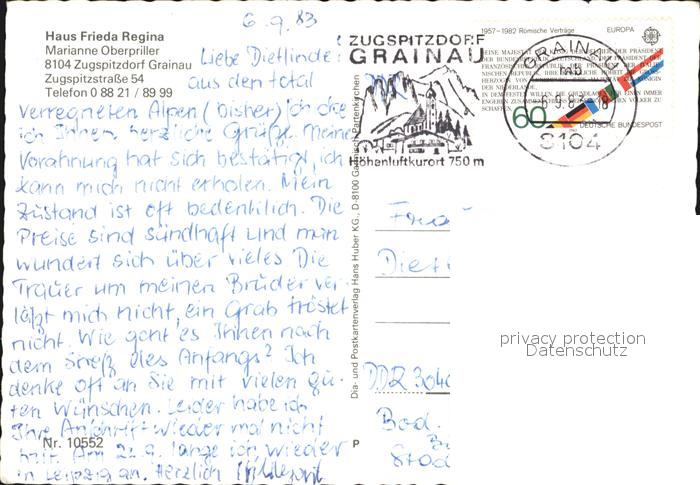 6.9.83
Haus Frieda Regina
Marianne Oberpriller
8104 Zugspitzdorf Grainau
Zugspitzstraße 54
Telefon 0 88 21 / 89 99
Liebe Dietlinde!
aus den total
verregneten Alpen (bisher) ich
ich Ihnen herzliche Grüße. Meine
Vorahnung hat sich bestätigt, ich
kann mich nicht erholen. Mein
Zustand ist oft bedenklich. Die
Preise sind sündhaft und man
wundert sich über vieles Die
Trauer um meinen Brüder ver-
läßt mich nicht, ein Grab tröstet
nicht. Wie geht es Ihnen nach
dem Streß des Anfangs? Ich
denke oft an Sie mit vielen gü-
ten Wünschen. Leider habe ich
Ihre Anschrift wieder mal nicht
mit. Am 22.9. lange ich wieder
in Leipzig an. Herzlich
Nr. 10552
Dia- und Postkartenverlag Hans Huber KG., D-8100 Garmisch-Partenkirchen
P
ZUGSPITZDORF
GRAINAU
Höhenluftkurort 750 m
GRAINAU
8104
1957-1982 Römische Verträge EUROPA
60
DEUTSCHE BUNDESPOST
Frau
Diet
DDR 304
Bad.
privacy protection
Datenschutz